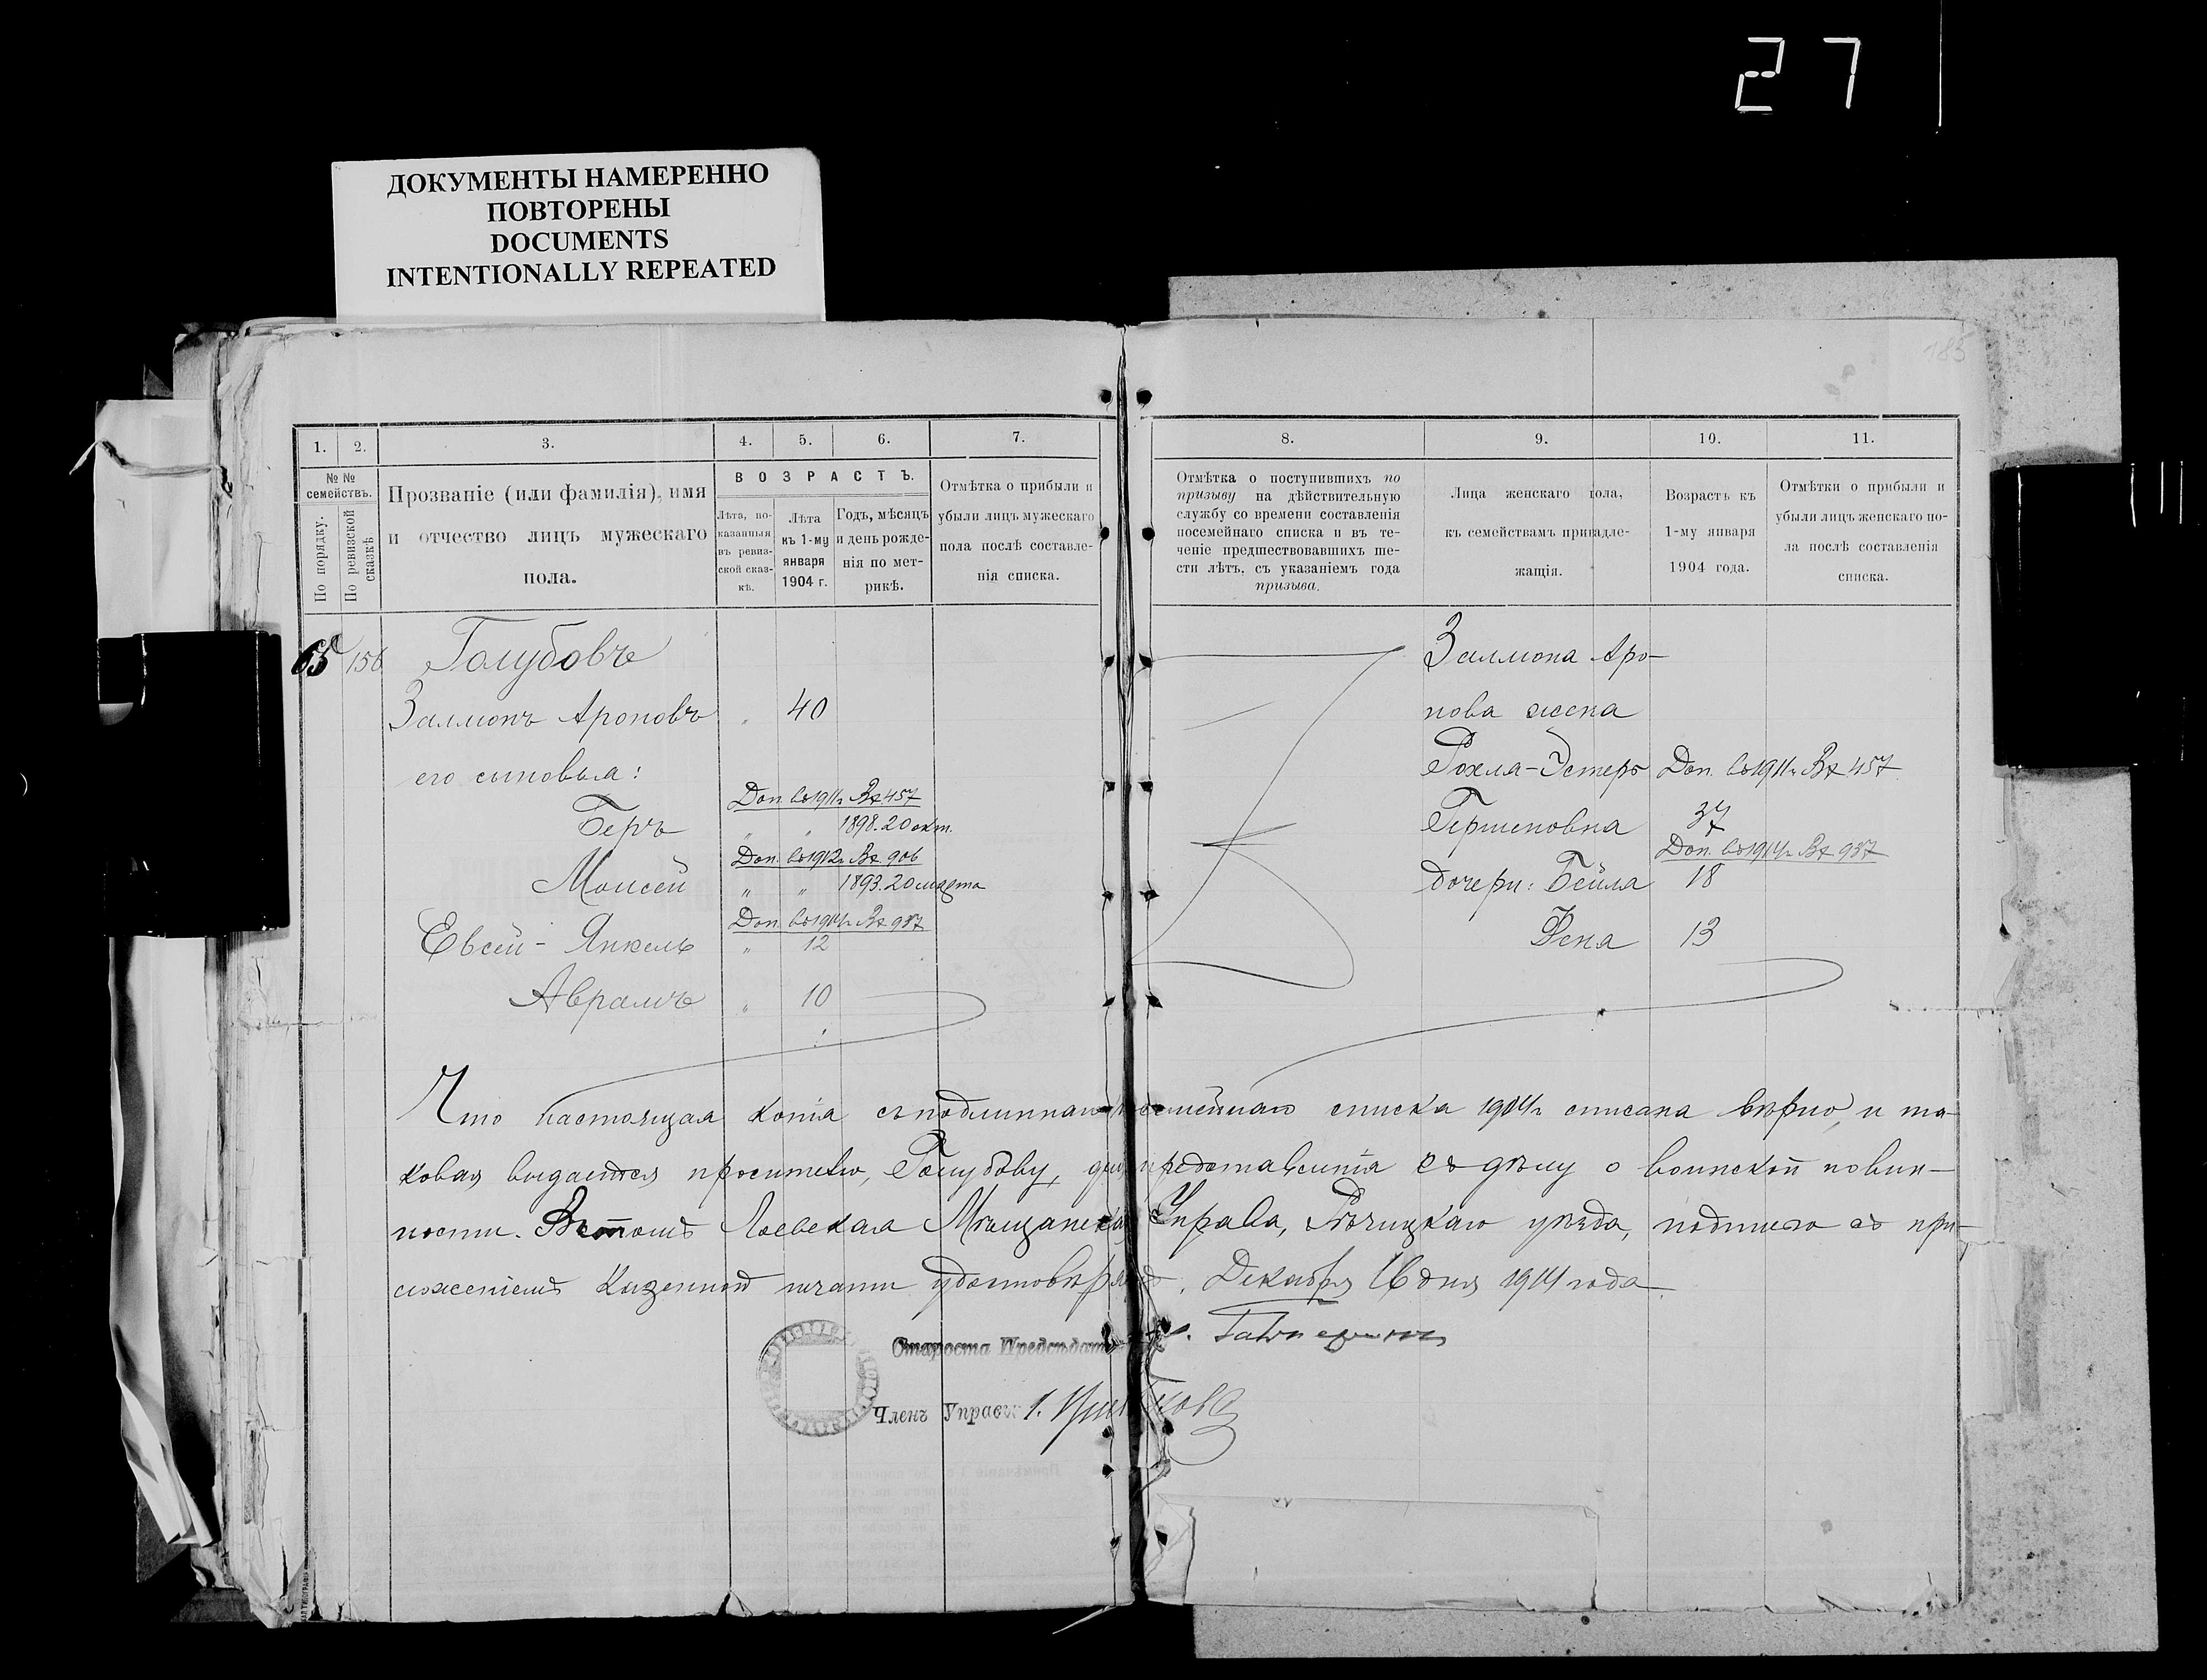 27
ДОКУМЕНТЫ НАМЕРЕННО
ПОВТОРЕНЫ
DOCUMENTS
INTENTIONALLY REPEATED
185
1.
2.
3.
4.
5.
6.
7.
№ №
семействъ.
По порядку.
По ревизской
сказкѣ
Прозваніе (или фамилія), имя
и отчество лицъ мужескаго
пола.
ВОЗРАСТЪ.
Лѣта, по-
казанныя
въ ревиз-
ской сказ-
кѣ.
Лѣта
къ 1-му
января
1904 г.
Годъ, мѣсяцъ
и день рожде-
нія по мет-
рикѣ.
Отмѣтка о прибыли и
убыли лицъ мужескаго
пола послѣ составле-
нія списка.
65 156 Голубовъ
Залмонъ Ароновъ „ 40
его сыновья:
Доп. въ 1911г. Вх 457
Беръ „ „ 1898. 20 окт.
Доп. въ 1912г. Вх. 906
Моисей „ „ 1893. 20 марта
Доп. въ 1914г. Вх 937
Евсей-Янкель „ 12
Абрамъ „ 10
8.
9.
10.
11.
Отмѣтка о поступившихъ по
призыву на дѣйствительную
службу со времени составленія
посемейнаго списка и въ те-
ченіе предшествовавшихъ ше-
сти лѣтъ, съ указаніемъ года
призыва.
Лица женскаго пола,
къ семействамъ принадле-
жащія.
Возрастъ къ
1-му января
1904 года.
Отмѣтки о прибыли и
убыли лицъ женскаго по-
ла послѣ составленія
списка.
Залмона Аро-
нова жена
Рохла-Эстеръ Доп. въ 1911г. Вх 457
Гершеновна 37
Доп. въ 1914г. Вх 937
дочери: Бейла 18
Фена 13
Что настоящая копія съ подлиннаго посемейнаго списка 1904г. списана вѣрно, и та-
ковая выдается просителю, Голубову, для представленія къ дѣлу о воинской повин-
ности. Въ томъ Лоевская Мѣщанская Управа, Рѣчицкаго уѣзда, подписью съ при-
ложеніемъ Казенной печати удостовѣряетъ. Декабря 16 дня 1914 года.
Староста Предсѣдат
Членъ Управы